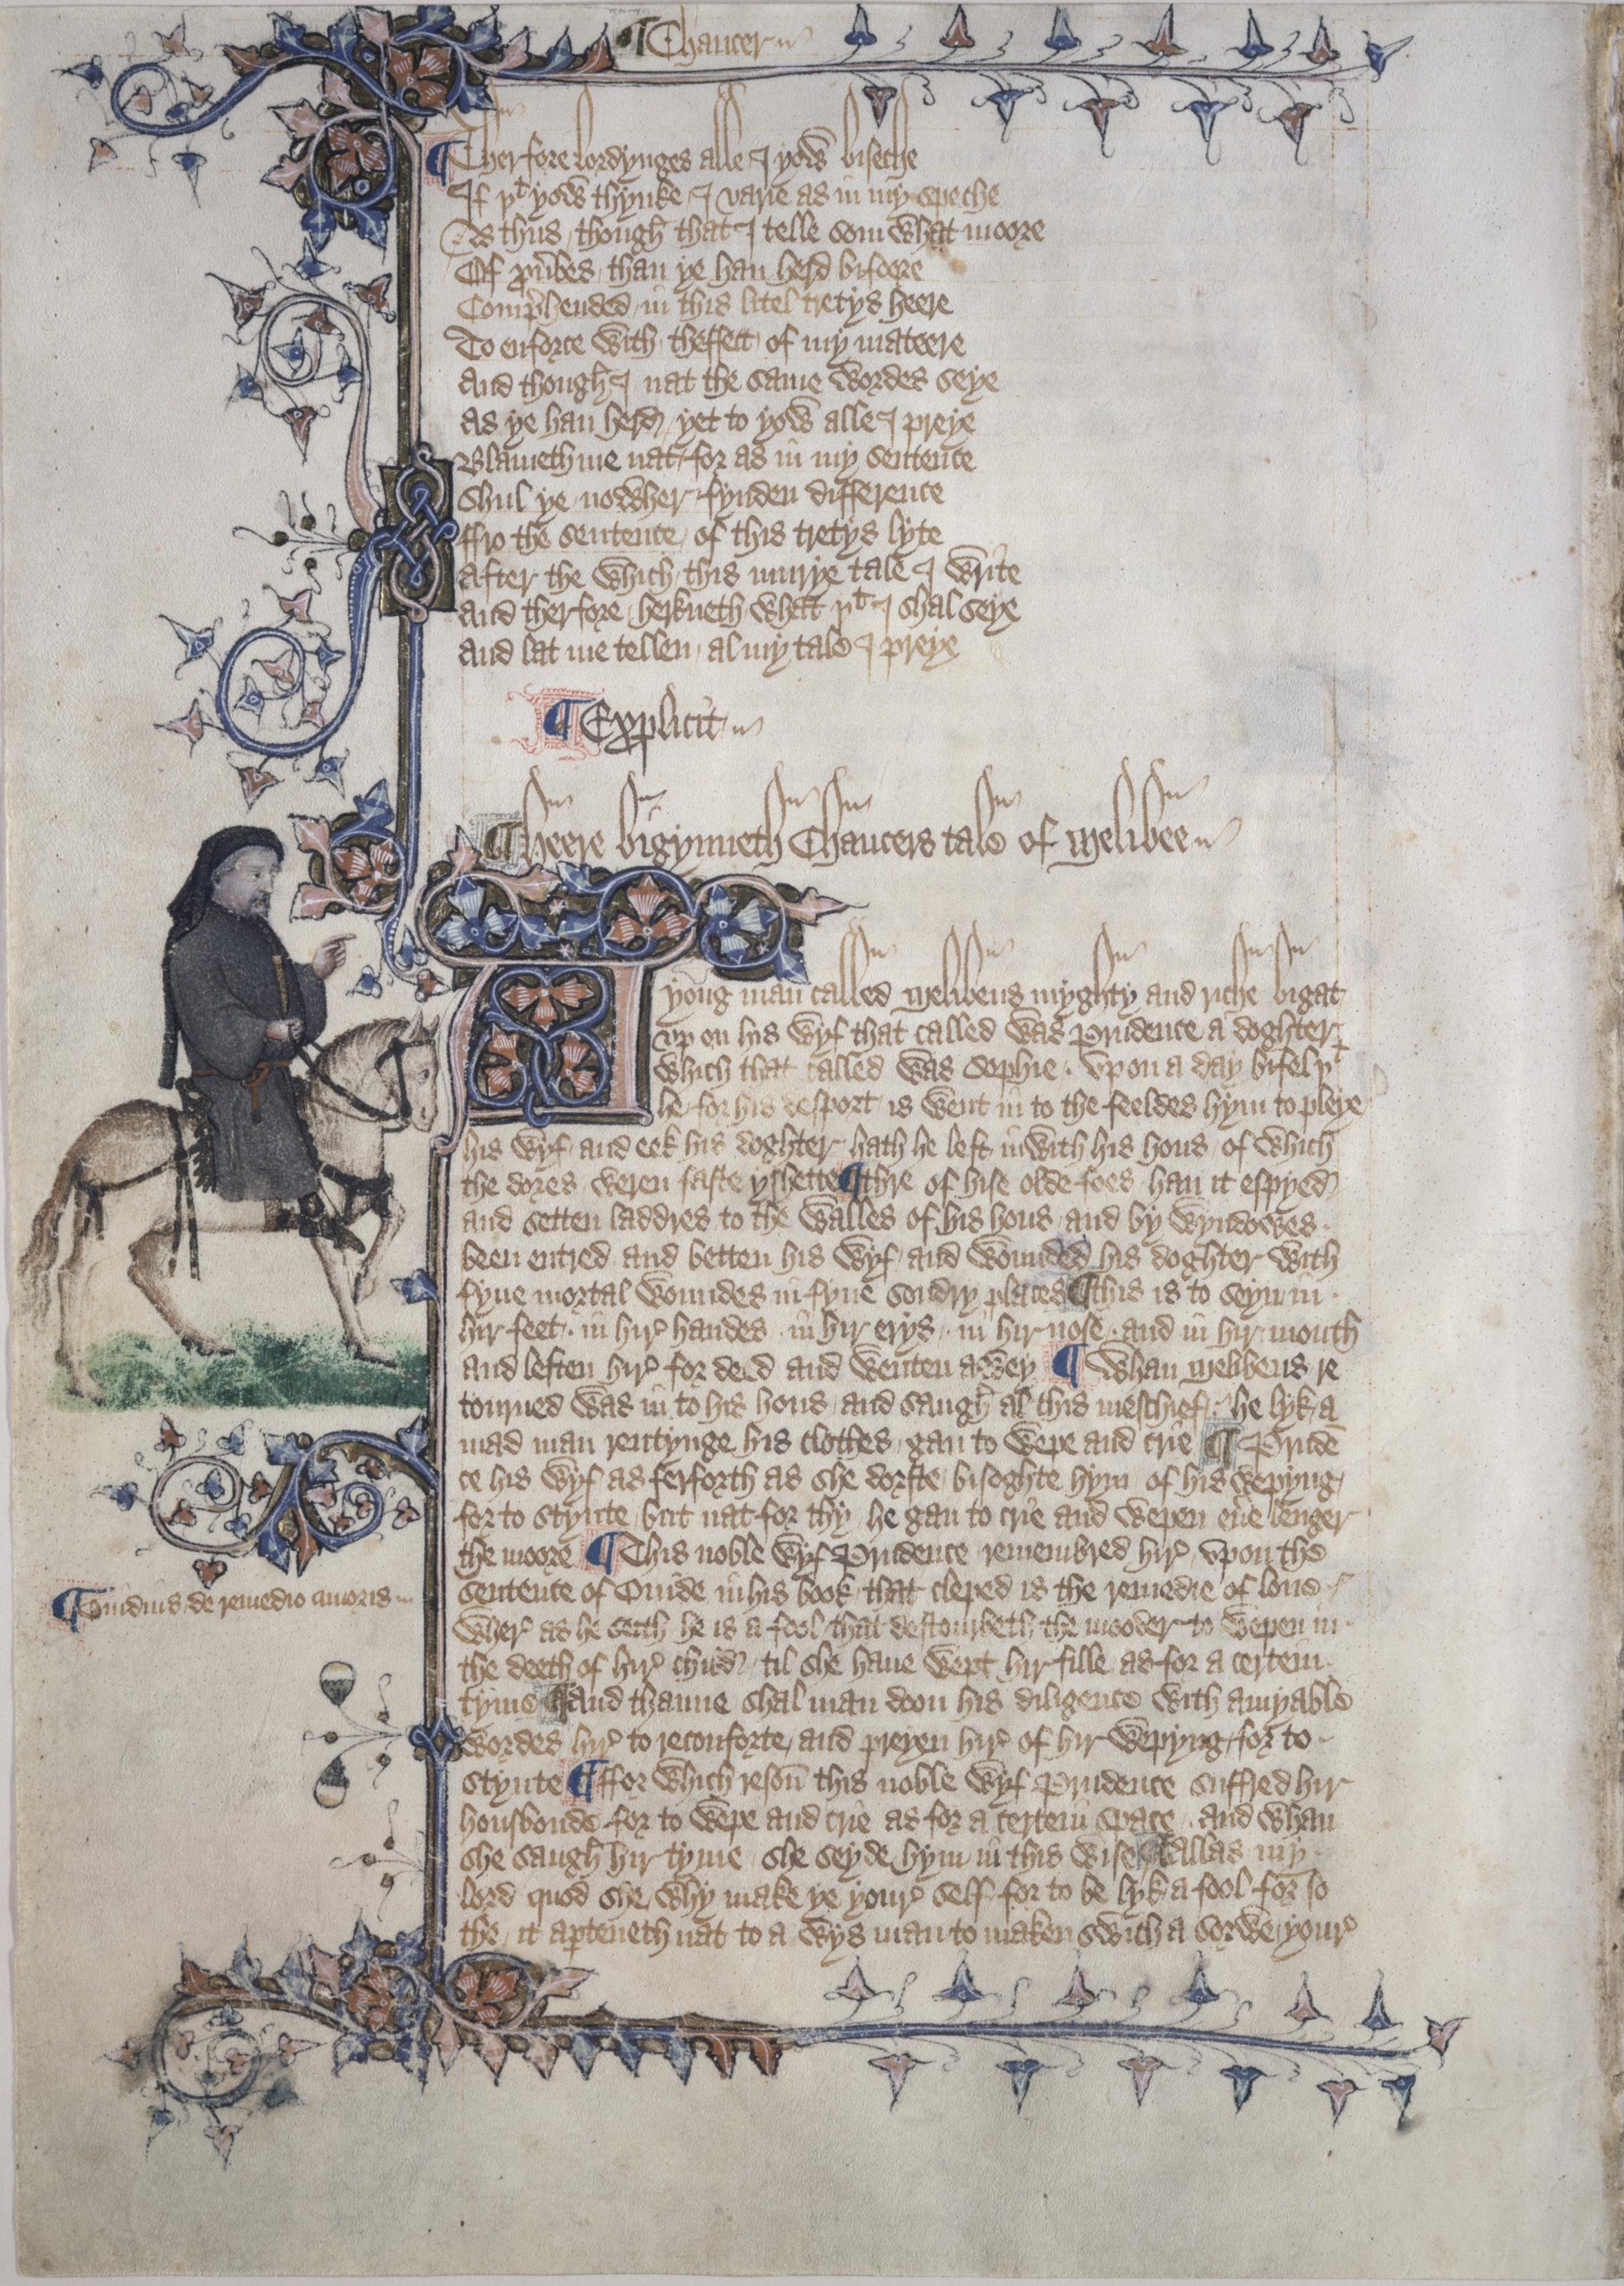 ¶ Chaucer
¶ Therfore lordynges alle I yow biseche
If þt yow thynke I varie as in my speche
As thus though that I telle som what moore
Of prouerbes than ye han herd bifoore
Comprehended in this litel tretys heere
To enforce with theffect of my mateere
And though I nat the same wordes seye
As ye han herd yet to yow alle I preye
Blameth me nat for as in my sentence
Shul ye nowher fynden difference
ffro the sentence of this tretys lyte
After the which this murye tale I write
And therfore herkneth what þt I shal seye
And lat me tellen al my tale I preye
¶ Explicit
¶ Heere bigynneth Chaucers tale of Melibee
A yong man called Melibeus myghty and riche bigat
vp on his wyf that called was Prudence a doghter
which that called was Sophie . vpon a day bifel þt
he for his desport is went in to the feeldes hym to pleye
his wyf and eek his doghter hath he left inwith his hous of which
the dores weren faste yshette ¶ thre of hise olde foes han it espyed
and setten laddres to the walles of his hous and by wyndowes
been entred and betten his wyf and wounded his doghter with
fyue mortal woundes in fyue sondry places ¶ this is to seyn in
hir feet . in hir handes . in hir erys . in hir nose . and in hir mouth
and leften hir for deed and wenten awey ¶ Whan Melibeus re
tourned was in to his hous and saugh al this meschief he lyk a
mad man rentynge his clothes gan to wepe and crie ¶ Pruden
ce his wyf as ferforth as she dorste bisoghte hym of his wepyng
for to stynte but nat for thy he gan to crie and wepen euere lenger
the moore ¶ This noble wyf Prudence remembred hir vpon the
sentence of Ouide in his book that cleped is the remedie of loue
¶ Ouidius de remedio amoris
wher as he seith he is a fool that destourbeth the mooder to wepen in
the deeth of hir child til she haue wept hir fille as for a certein
tyme ¶ And thanne shal man doon his diligence with amyable
wordes hir to reconforte and preyen hir of hir wepyng for to
stynte ¶ ffor which reson this noble wyf Prudence suffred hir
housbonde for to wepe and crie as for a certein space . and whan
she saugh hir tyme she seyde hym in this wise ¶ allas my
lord quod she why make ye your self for to be lyk a fool for so
the it aperteneth nat to a wys man to maken swich a sorwe your